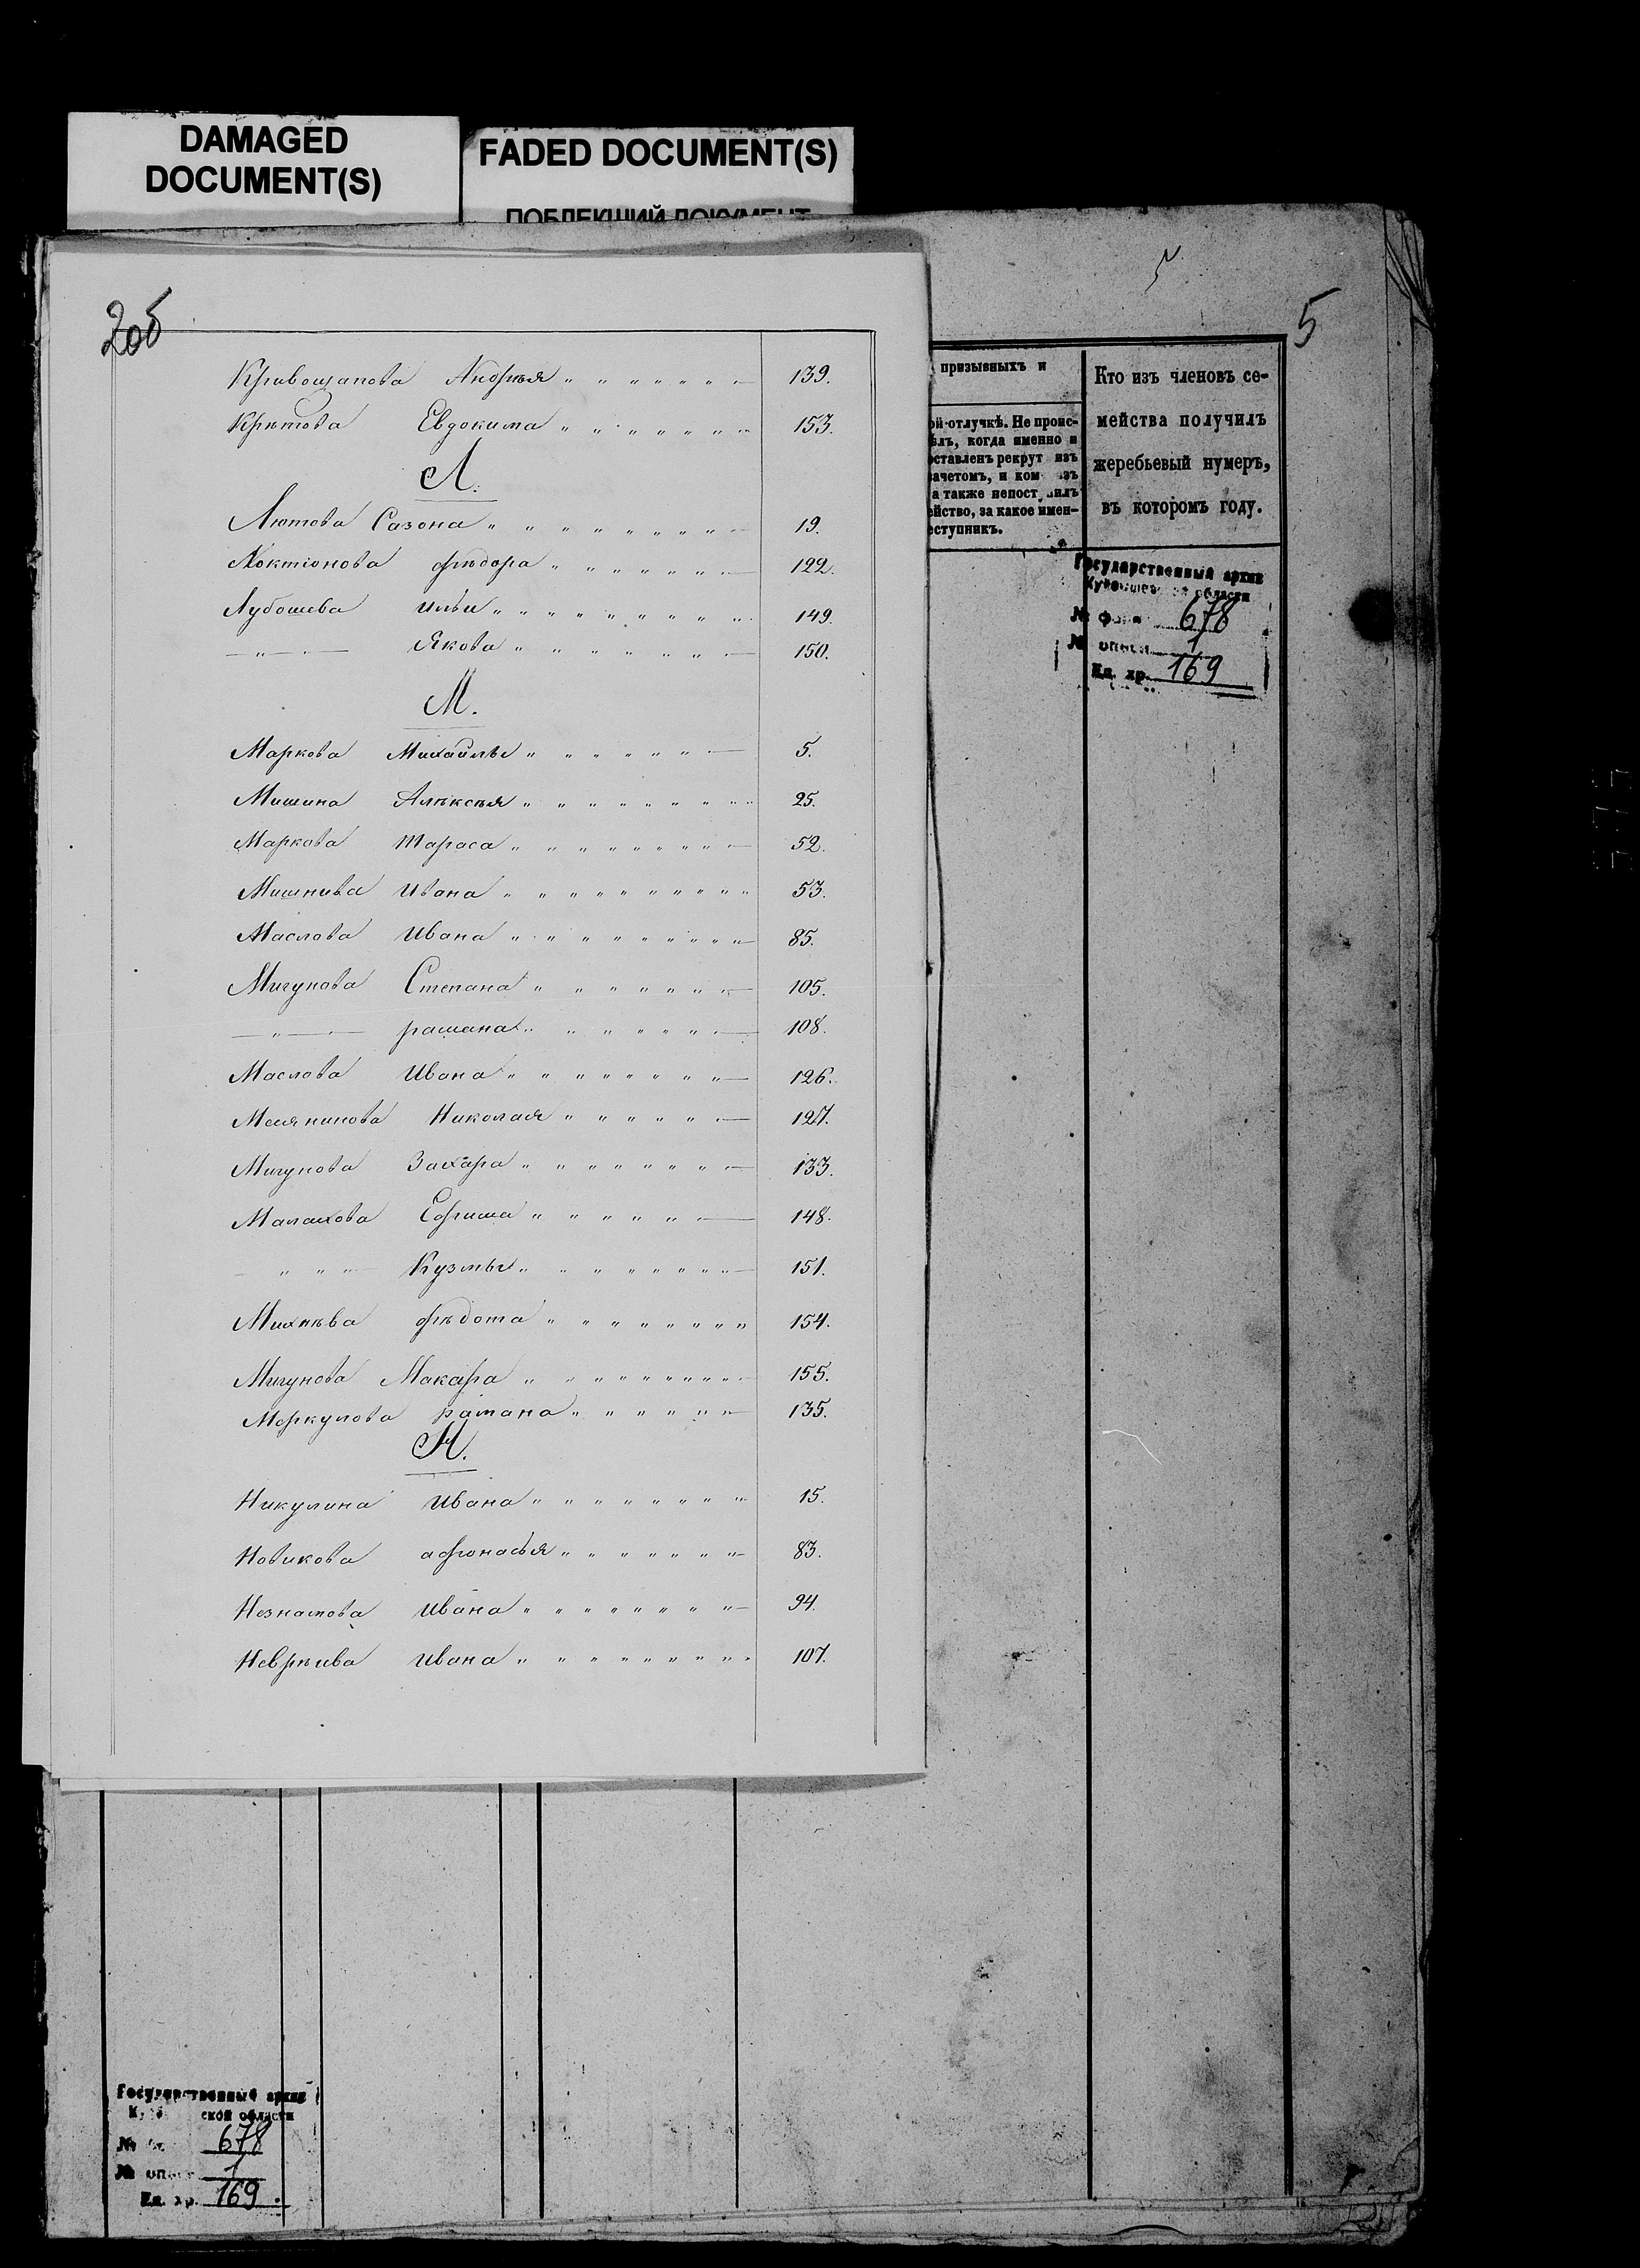 DAMAGED
DOCUMENT(S)
FADED DOCUMENT(S)
ПОБЛЕКШИЙ ДОКУМЕНТ
206
5
5
Кривощапова Андрѣя 139.
Крѣтова Евдокима 153.
Л.
Лютова Сазона 19.
Локтіонова Фѣдора 122.
Лубошева Ильи 149.
—„— Якова 150.
М.
Маркова Михайлы 5.
Мишина Алѣксѣя 25.
Маркова Тараса 52.
Мишнива Ивана 53.
Маслова Ивана 85.
Мигунова Степана 105.
—„— рамана 108.
Маслова Ивана 126.
Месянинова Николая 127.
Мигунова Захара 133.
Малахова Ефима 148.
— „ „ — Кузмы 151.
Михнѣва Фѣдота 154.
Мигунова Макара 155.
Меркулова рамана 135.
Н.
Никулина Ивана 15.
Новикова афонасья 83.
Незнамова Ивана 94.
Неврѣива Ивана 107.
призывныхъ и
ой-отлучкѣ. Не проис-
ѣлъ, когда именно и
оставленъ рекрут изъ
зачетомъ, и ком изъ
а также непост илъ
ейство, за какое имен-
еступникъ.
Кто изъ членовъ се-
мейства получилъ
жеребьевый нумеръ,
въ которомъ году.
Государственный архив
области
№ фон 678
№ описи 1
Ед. хр. 169
Государственный архив
ской области
№ 678
№ опис 1
Ед. хр. 169